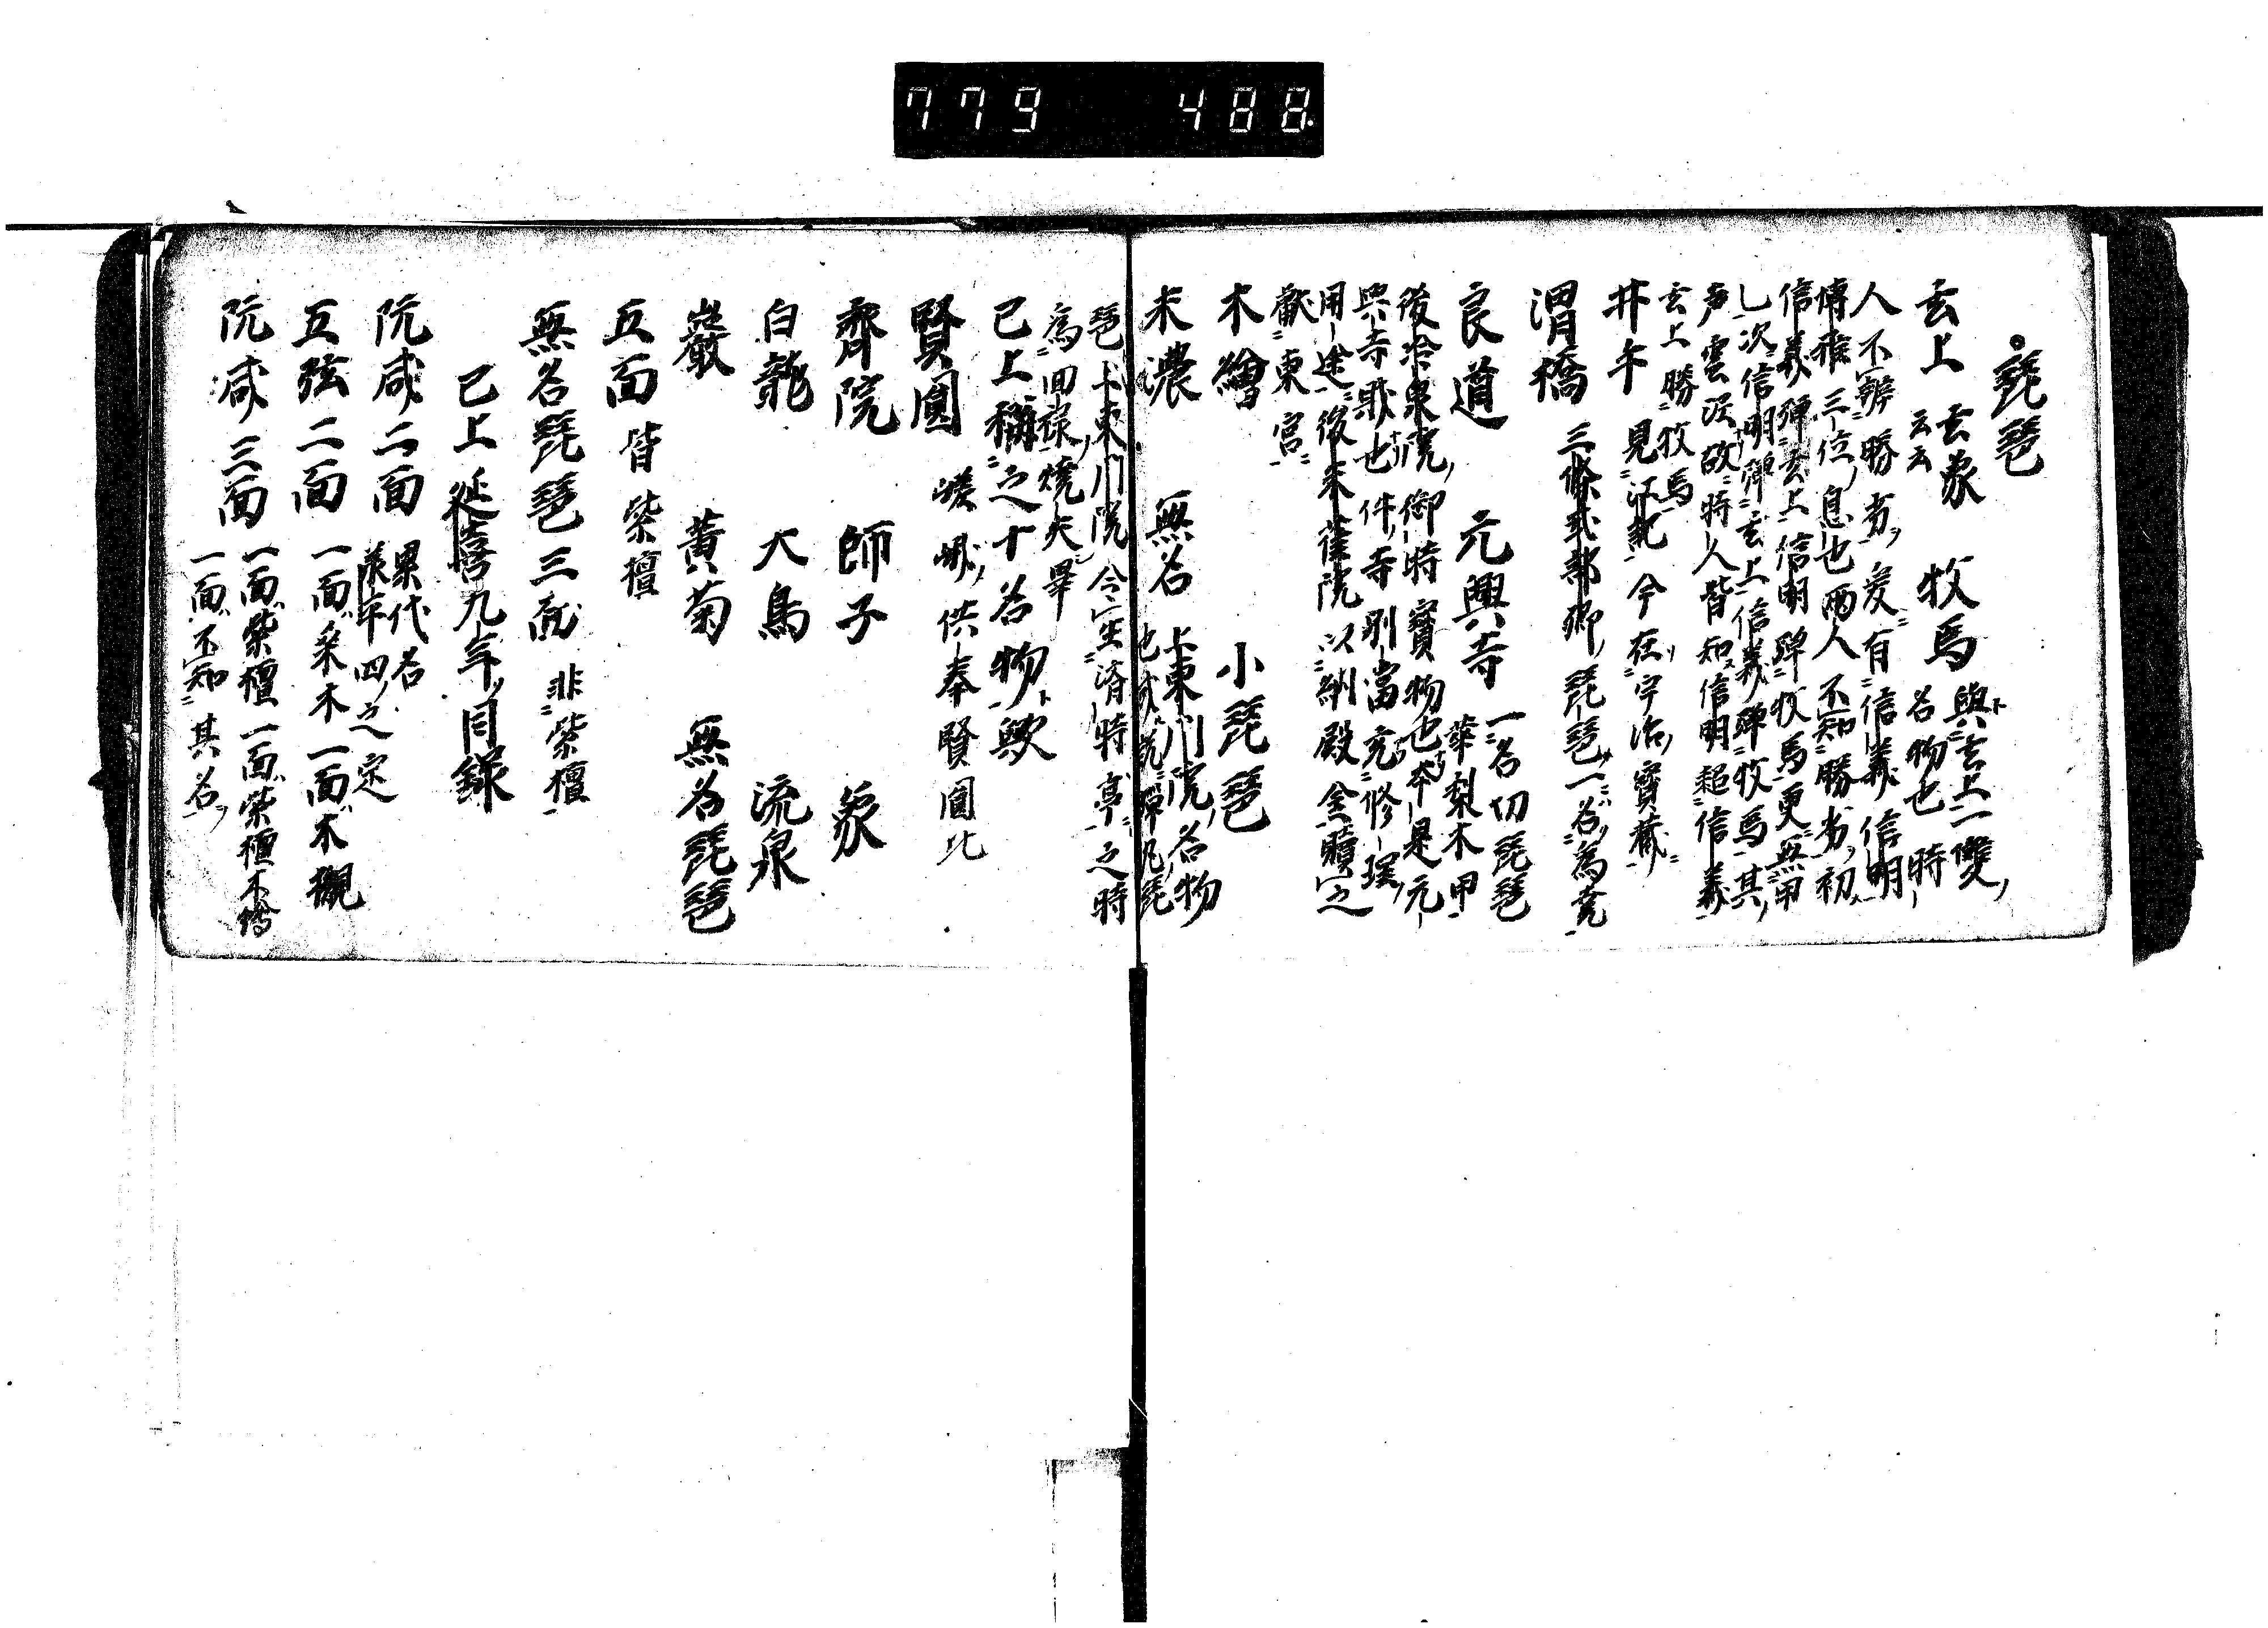 779 488
琵琶
玄上 玄象 牧馬 與玄上一雙
云云 名物也 時
人不辨勝劣爰有信義信明
博雅三位息也兩人不知勝劣初
信義弾玄上信明弾牧馬更無甲
乙次信明弾玄上信義弾牧馬其
声雲泥故時人皆知信明超信義
玄上勝牧馬
井午 見江記今在宇治寶蔵
渭橋 三條式部卿琵琶一名為堯
良道 元興寺 一名切琵琶
華梨木甲
後冷泉院御時寶物也本是元
興寺財也件寺別當充修理
用途後朱雀院以納殿金買之
獻東宮
木繪 小琵琶
末濃 無名 上東門院名物
也或説弾凡琵
琶上東門院令坐済時亭之時
為回禄燒失畢
已上稱之十名物歟
賢圓 嵯峨供奉賢圓比
齊院 師子 象
白龍 大鳥 流泉
巖 黃菊 無名琵琶
五面皆紫檀
無名琵琶三面 非紫檀
已上延喜九年目録
阮咸二面 累代名
年四之定
五弦二面 一面 木一面木
阮咸三面 一面紫檀一面紫檀木
一面不知其名